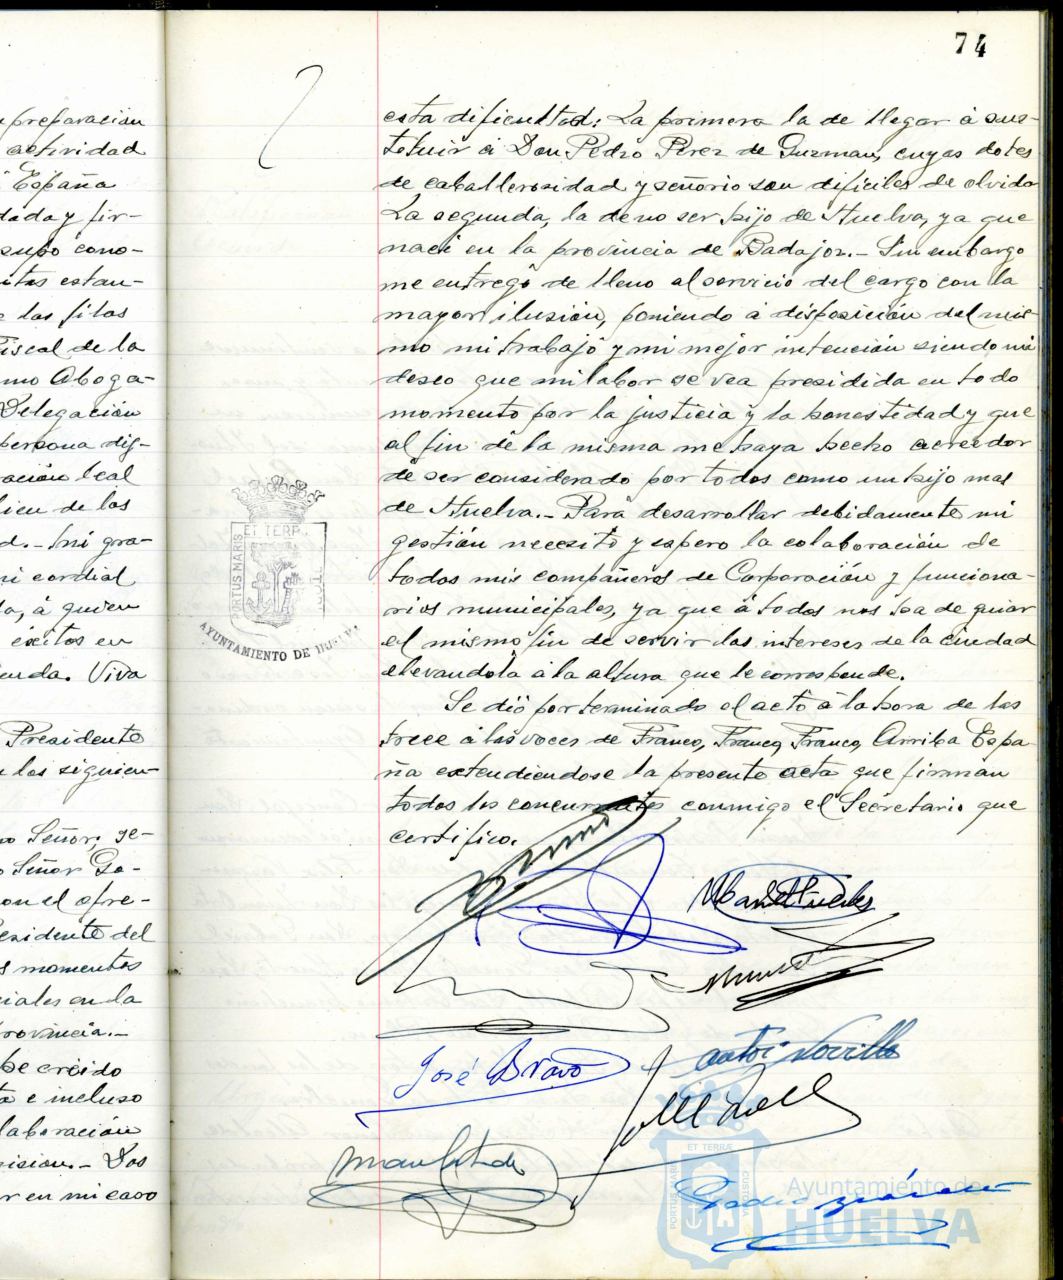 preparación
actividad
España
dada y fir-
supo cono-
estan-
las filas
Fiscal de la
mo Aboga-
Delegación
persona dig-
ración leal
bien de los
d.- Mi gra-
mi cordial
da, á quien
éxitos en
enda. Viva
Presidente
los siguien-
Señor, ge-
Señor Go-
con el ofre-
esidente del
s momentos
ciales en la
rovincia.-
he creido
ta e incluso
laboración
misión.- Dos
r en mi caso
74
esta dificultad: La primera la de llegar á sus-
tituir á Don Pedro Perez de Guzman, cuyas dotes
de caballerosidad y señorio son dificiles de olvidar
La segunda, la de no ser hijo de Huelva, ya que
naci en la provincia de Badajoz.- Sin embargo
me entregó de lleno al servicio del cargo con la
mayor ilusión, poniendo á disposición del mis-
mo mi trabajo y mi mejor intención siendo mi
deseo que mi labor se vea presidida en todo
momento por la justicia y la honestidad y que
al fin de la misma me haya hecho acreedor
de ser considerado por todos como un hijo mas
de Huelva.- Para desarrollar debidamente mi
gestión necesito y espero la colaboración de
todos mis compañeros de Corporación y funciona-
rios municipales, ya que á todos nos ha de guiar
el mismo fin de servir los intereses de la ciudad
elevandola á la altura que le corresponde.
Se dió por terminado el acto á la hora de las
trece á las voces de Franco, Franco, Franco, Arriba Espa-
ña extendiendose la presente acta que firman
todos los concurrentes conmigo el Secretario que
certifico.
José Bravo
PORTUS MARIS ET TERR
AYUNTAMIENTO DE HUELVA
PORTUS MARIS ET TERRÆ CUSTODIA
Ayuntamiento de
HUELVA